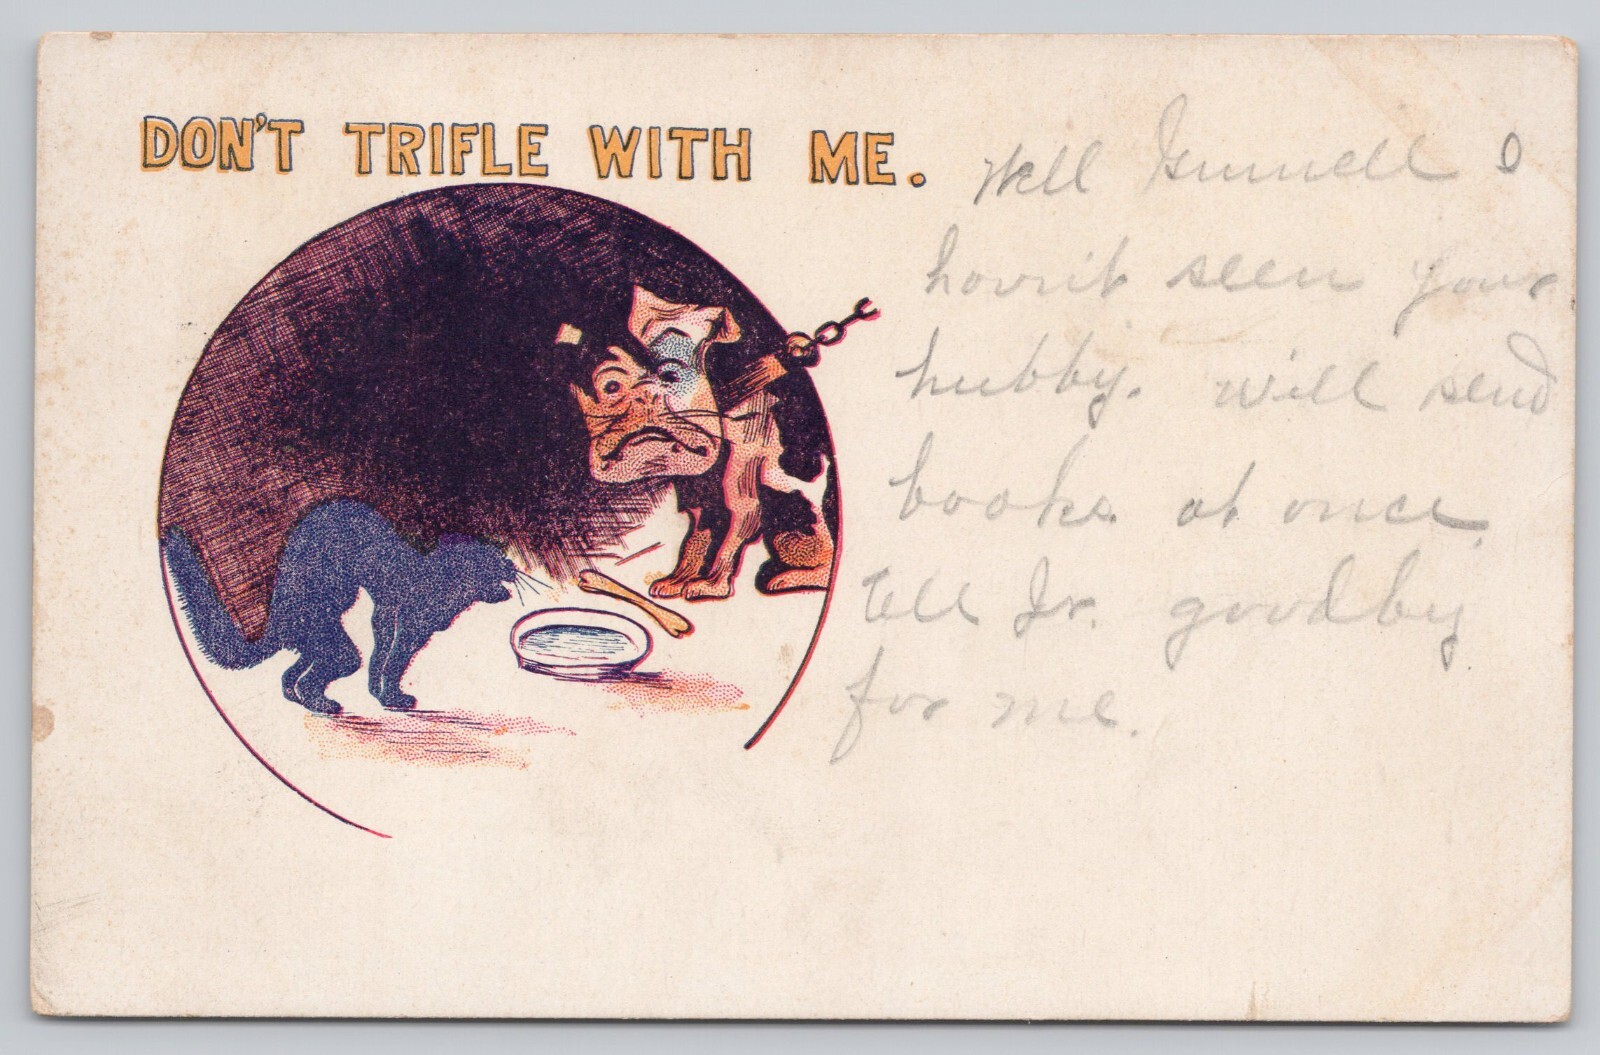 DON'T TRIFLE WITH ME.
Well I
hovn't seen your
hubby. Will send
books at once.
Tell Jr. goodby
for me.